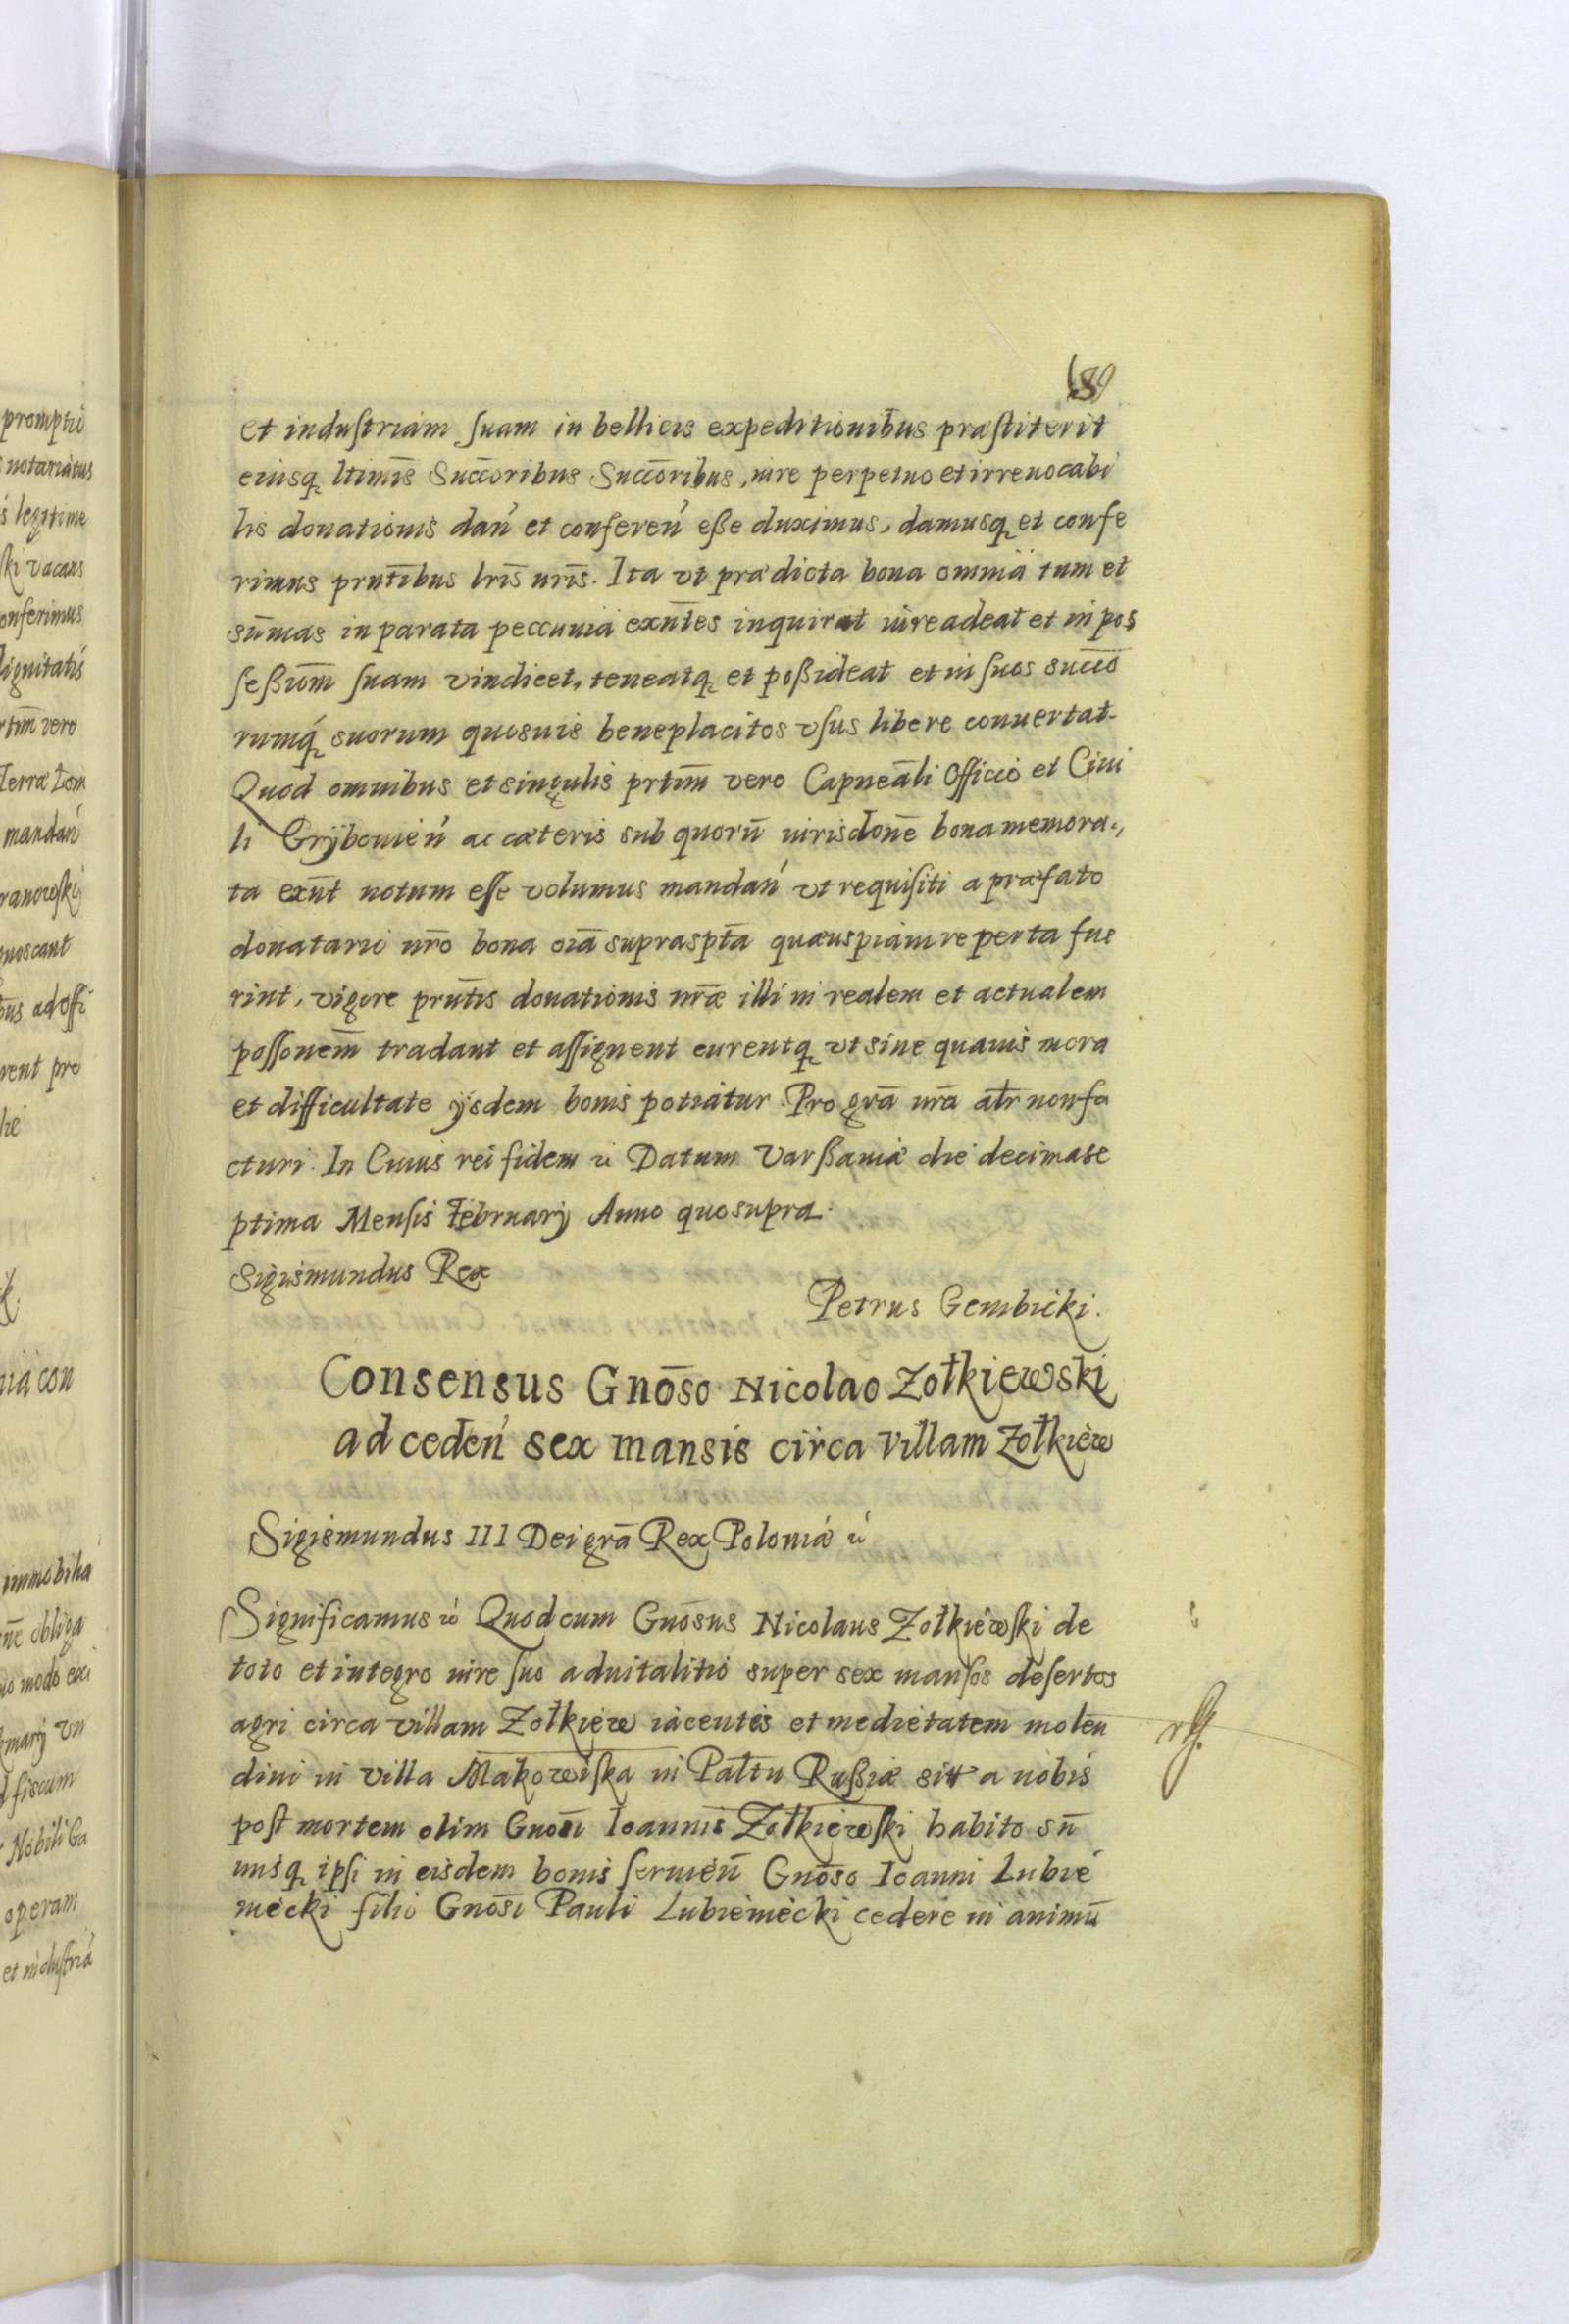 189
et industriam suam in bellicis expeditionibus præstiterit
eiusq ltimis̄ Succ̄oribus Succ̄oribus, iure perpetuo et irreuocabi
lis donationis dań et confereń eße duximus, damusq et confe
rimus prnt̄ibus lris̄ nris̄. Ita vt prædicta bona omnia tum et
sum̄as in parata peccunia exnt̄es inquirat iure adeat et in pos
seßiom̄ suam vindicet, teneatq et poßideat et in suos succo̅
rumq́ suorum quosuis beneplacitos vsus libere conuertat.
Quod omnibus et singulis prtim̄ vero Capneāli Officio et Ciui
li Grÿbouień ac cæteris sub quorū iurisdone̅ bona memora,,
ta exnt̄ notum esse volumus mandań vt requisiti a præfato
donatario nrō bona oīa supraspt̄a quæuspiam reperta fue
rint, vigore prnt̄is donationis nrǣ illi in realem et actualem
possonem̄ tradant et assignent curentq vt sine quauis mora
et difficultate ijsdem bonis potiatur. Pro grā nrā alr̄ non fa
cturi. In Cuius rei fidem &c Datum Varßauiæ die decima se
ptima Mensis Februarij Anno quo supra.
Sigismundus Rex
Petrus Gembicki.
Consensus Gnōso Nicolao Zołkiewski
ad cedeń sex mansis circa villam Zołkiew
Sigismundus III Dei grā Rex Poloniæ &c
Significamus &c Quod cum Gnōsus Nicolaus Zołkiewski de
toto et integro iure suo aduitalitio super sex mansos desertos
agri circa villam Zołkiew iacentis et medietatem molen
dini in villa Makowiska in Paltu Rußiæ sitt a nobis
post mortem olim Gnosī Ioannis Zołkiewski habito sū
misq ipsi in eisdem bonis seruień Gnōso Ioanni Lubie
niecki filio Gnōsi Pauli Lubieniecki cedere in animū